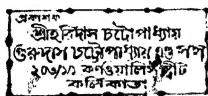 প্রকাশক
শ্রীহরিদাস চট্টোপাধ্যায়
গুরুদাস চট্টোপাধ্যায় এণ্ড সন্স
২০৩/১/১ কর্ণওয়ালিস্ ষ্ট্রীট
কলিকাতা